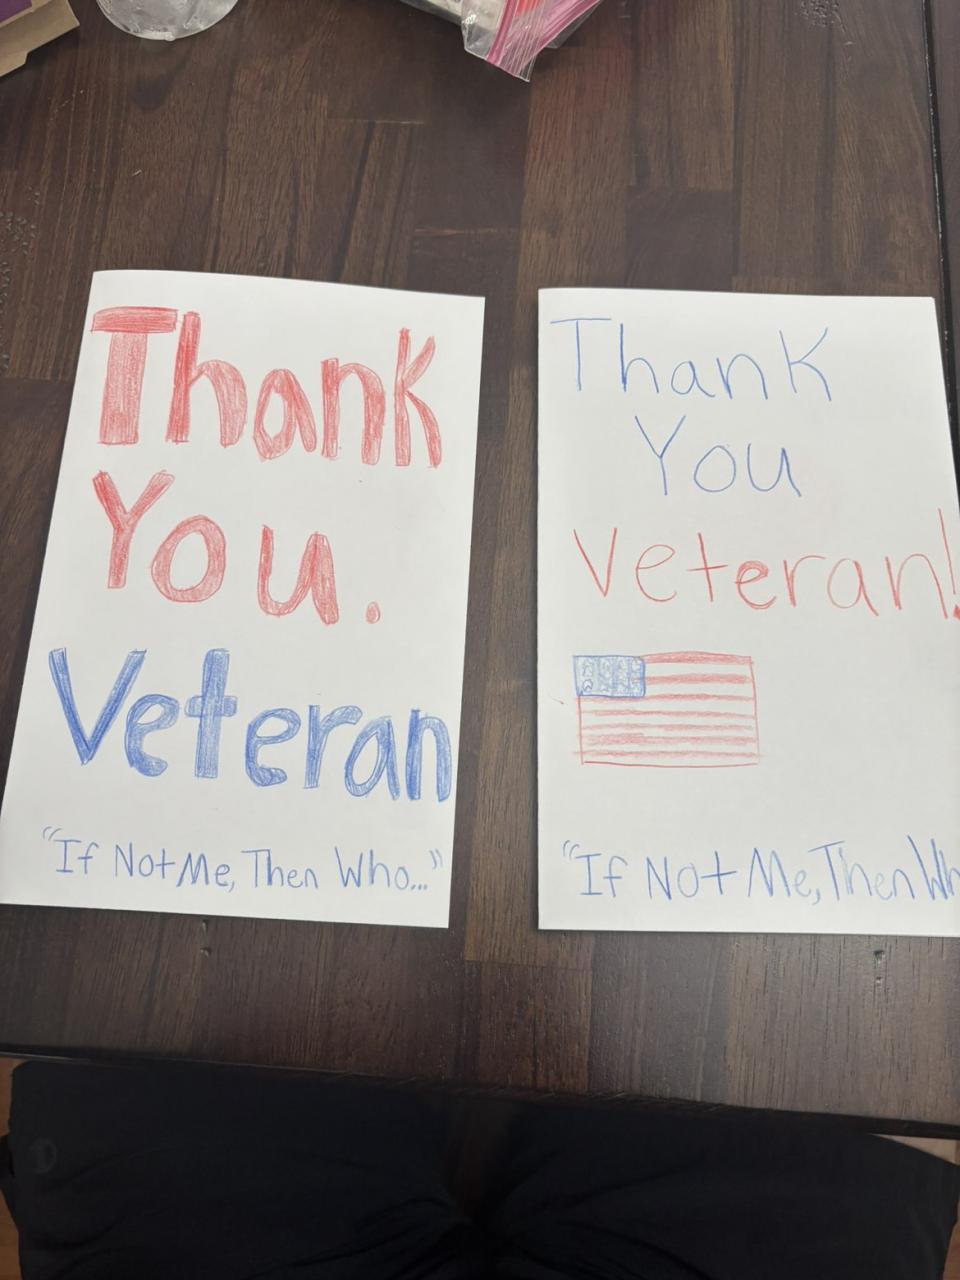 Thank
You.
Veteran
"If Not Me, Then Who..."
Thank
You
Veteran!
"If Not Me, Then Wh